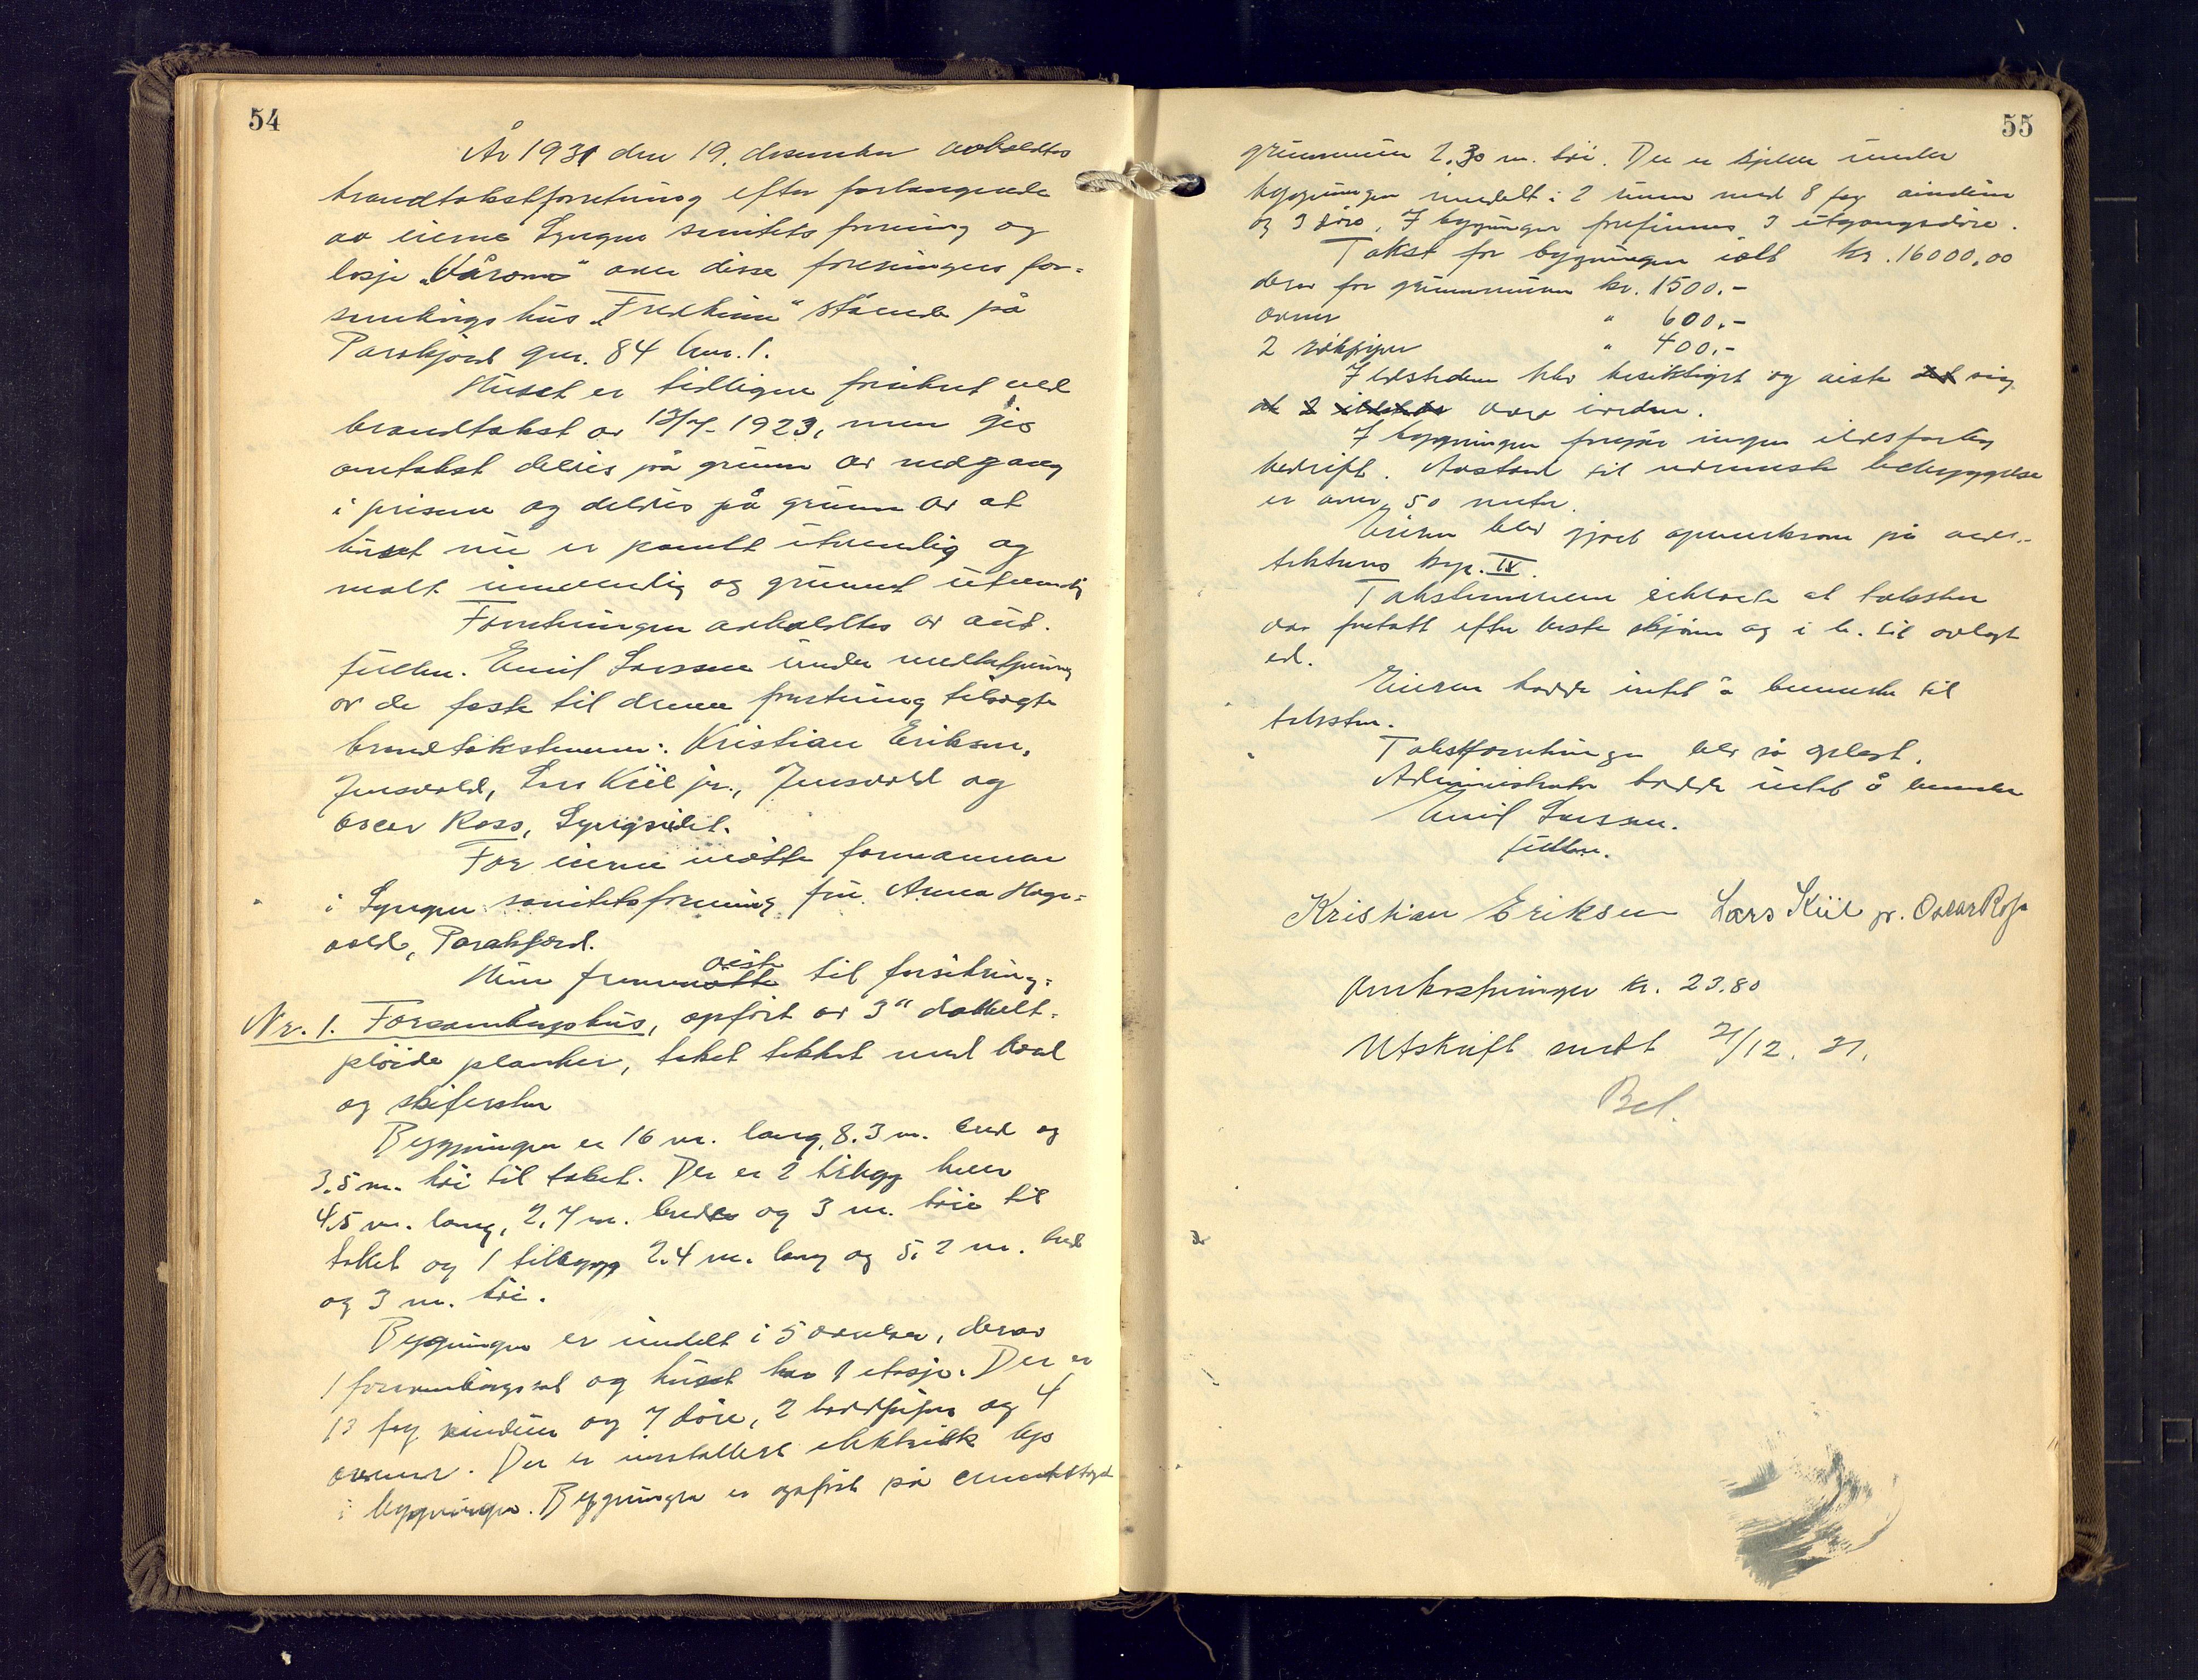 54
År 1931 den 19. desember avholdtes
brandtakstforretning efter forlangende
av eierne Lyngen sanitetsforening og
losje „Vårom" over disse foreningers for-
samlingshus „Fredheim" stående på
Parakjord gnr. 84 bnr. 1.
Huset er tidligere forsikret ved
brandtakst av 13/7- 1923, men gis
omtakst delvis på grunn av nedgang
i prisene og delvis på grunn av at
huset nu er panelt utvendig og
malt innvendig og grunnet utvendig
Forretningen avholdtes av aut.
fullm. Emil Larssen under medbetjening
av de faste til denne forretning tilsagte
brandtakstmenn: Kristian Eriksen,
Jensvold, Lars Kiil jr., Jensvold og
Oscar Ross, Lyngseidet.
For eierne møtte formannen
i Lyngen sanitetsforening fru Anna Hage-
vold, Parakjord.
viste
Hun frem til forsikring:
Nr. 1. Forsamlingshus, opført av 3" dobbelt-
pløide planker, taket tekket med bord
og skifersten
Bygningen er 16 m. lang, 8.3 m. bred og
3.5 m. høi til taket. Der er 2 tilbygg hver
4,5 m. lang, 2,7 m. bredt og 3 m. høi til
taket og 1 tilbygg 2.4 m. lang og 5.2 m. bred
og 3 m. høi.
Bygningen er inndelt i 5 værelser, derav
1 forsamlingssal og huset har 1 etasje. Der er
13 fag vinduer og 7 døre, 2 og 4
ovner. Der er installert elektrisk lys
i bygningen. Bygningen er opført på
55
grunnmur 2.30 m. høi. Der er kjeller under
bygningen inndelt i 2 rum med 8 fag vinduer
og 3 døre. I bygningen forefinnes 3 utgangsdøre.
Takst for bygningen ialt kr. 16000,00
derav for grunnmuren kr. 1500.-
ovner " 600.-
2 " 400.-
Ildstedene blev besiktiget og viste sig
å være iorden.
I bygningen foregår ingen ildsfarlig
bedrift. Avstand til nærmeste bebyggelse
er over 50 meter.
Eieren blev gjort opmerksom på ved-
tektenes kap. IV.
Takstmennene erklærte at taksten
var foretatt efter beste skjønn og i h. til avlagt
ed.
Eieren hadde intet å bemerke til
taksten.
Takstforretningen blev så oplest.
Administrator hadde intet å bemerke
Emil Larssen.
fullm.
Kristian Eriksen Lars Kiil jr. Oscar Ross
Omkostninger kr. 23.80
Utskrift sendt 21/12. 31.